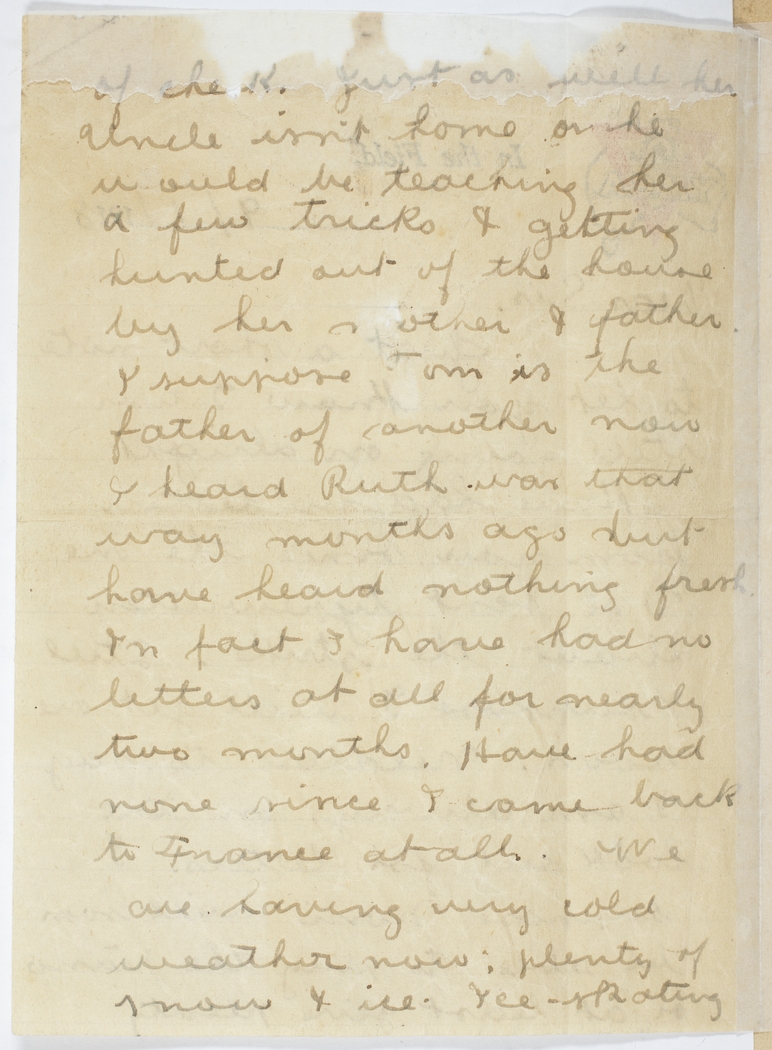 of cheek. Just as well her
Uncle isn't home or he
would be teaching her
a few tricks & getting
hunted out of the house
by her mother & father.
I suppose Tom is the
father of another now
I heard Ruth was that
way months ago but
have heard nothing fresh.
In fact I have had no
letters at all for nearly
two months. Have had
none since I came back
to France at all. We
are having very cold
weather now; plenty of
snow & ice. Ice-skating
In the Field.